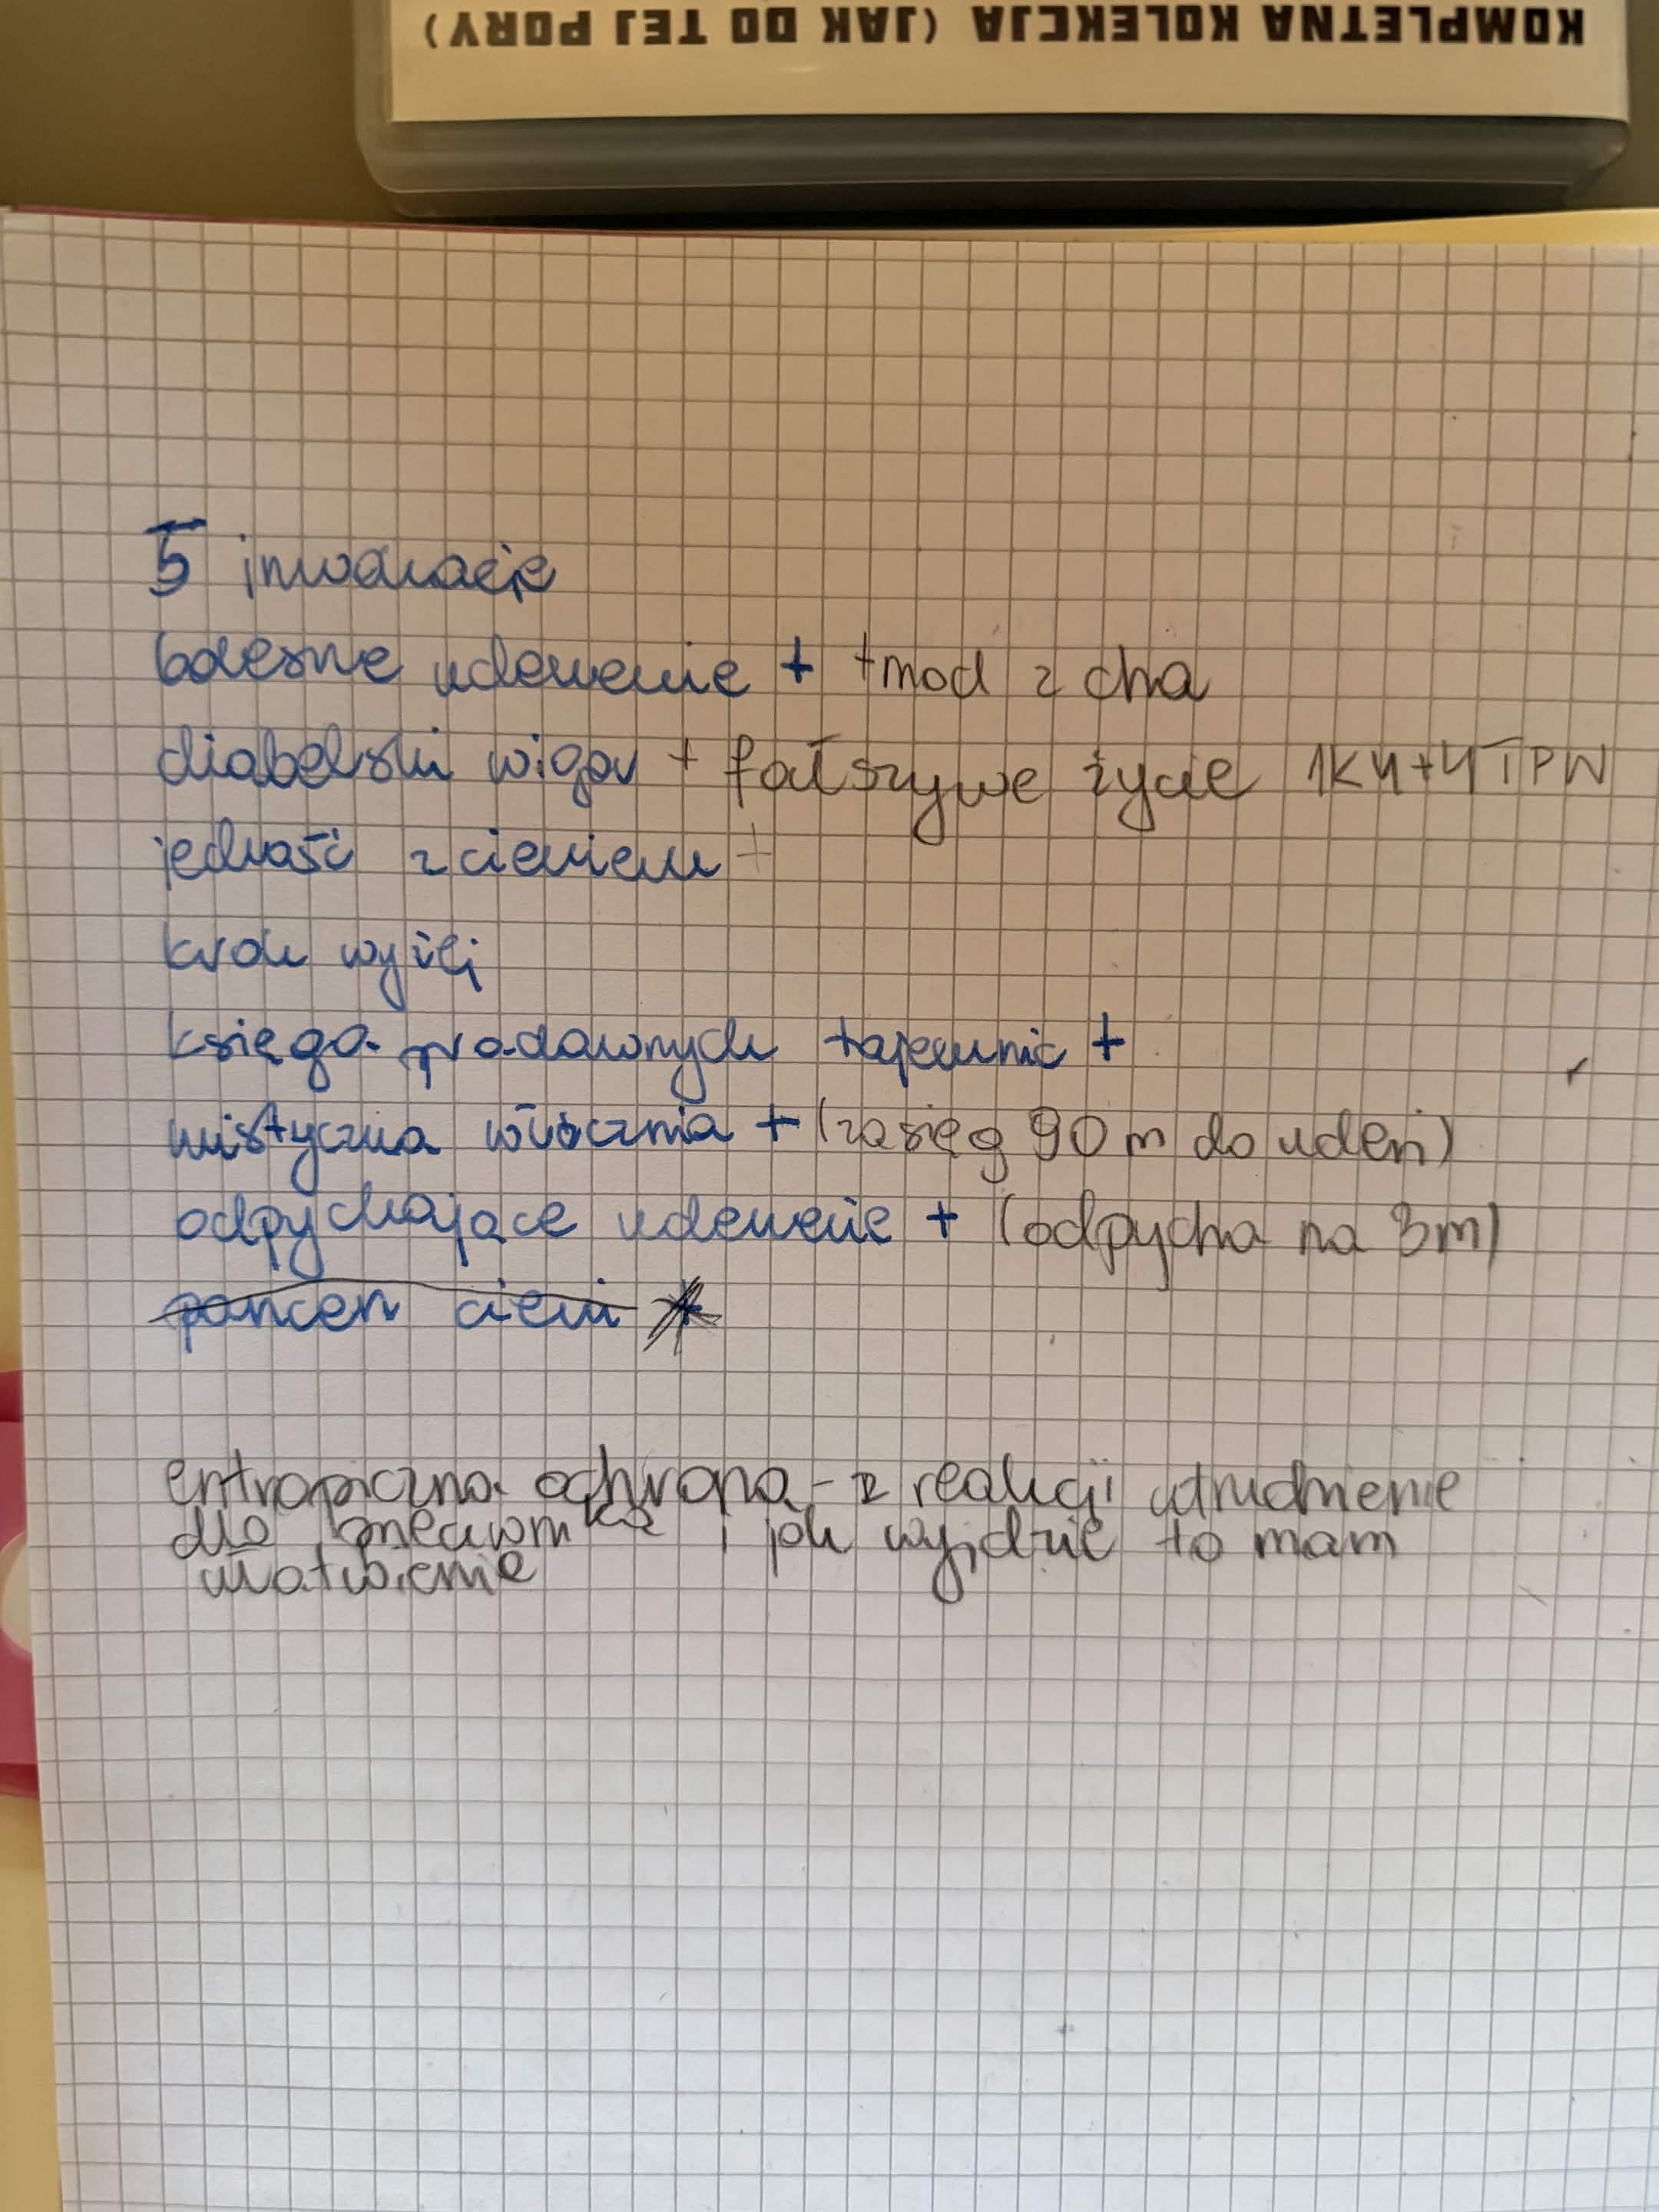 KOMPLETNA KOLEKCJA (JAK DO TEJ PORY)
5 inwokacje
bolesne uderzenie + +mod z cha
diabelski wigor + fałszywe życie 1K4+4TPW
jedność z cieniem +
krok wyżej
księga pradawnych tajemnic +
mistyczna włócznia + (zasięg 90 m do uderz)
odpychające uderzenie + (odpycha na 3m)
pancerz cieni +
entropiczna ochrona - z reakcji utrudnienie
dla przeciwnika i jak wyjdzie to mam
ułatwienie